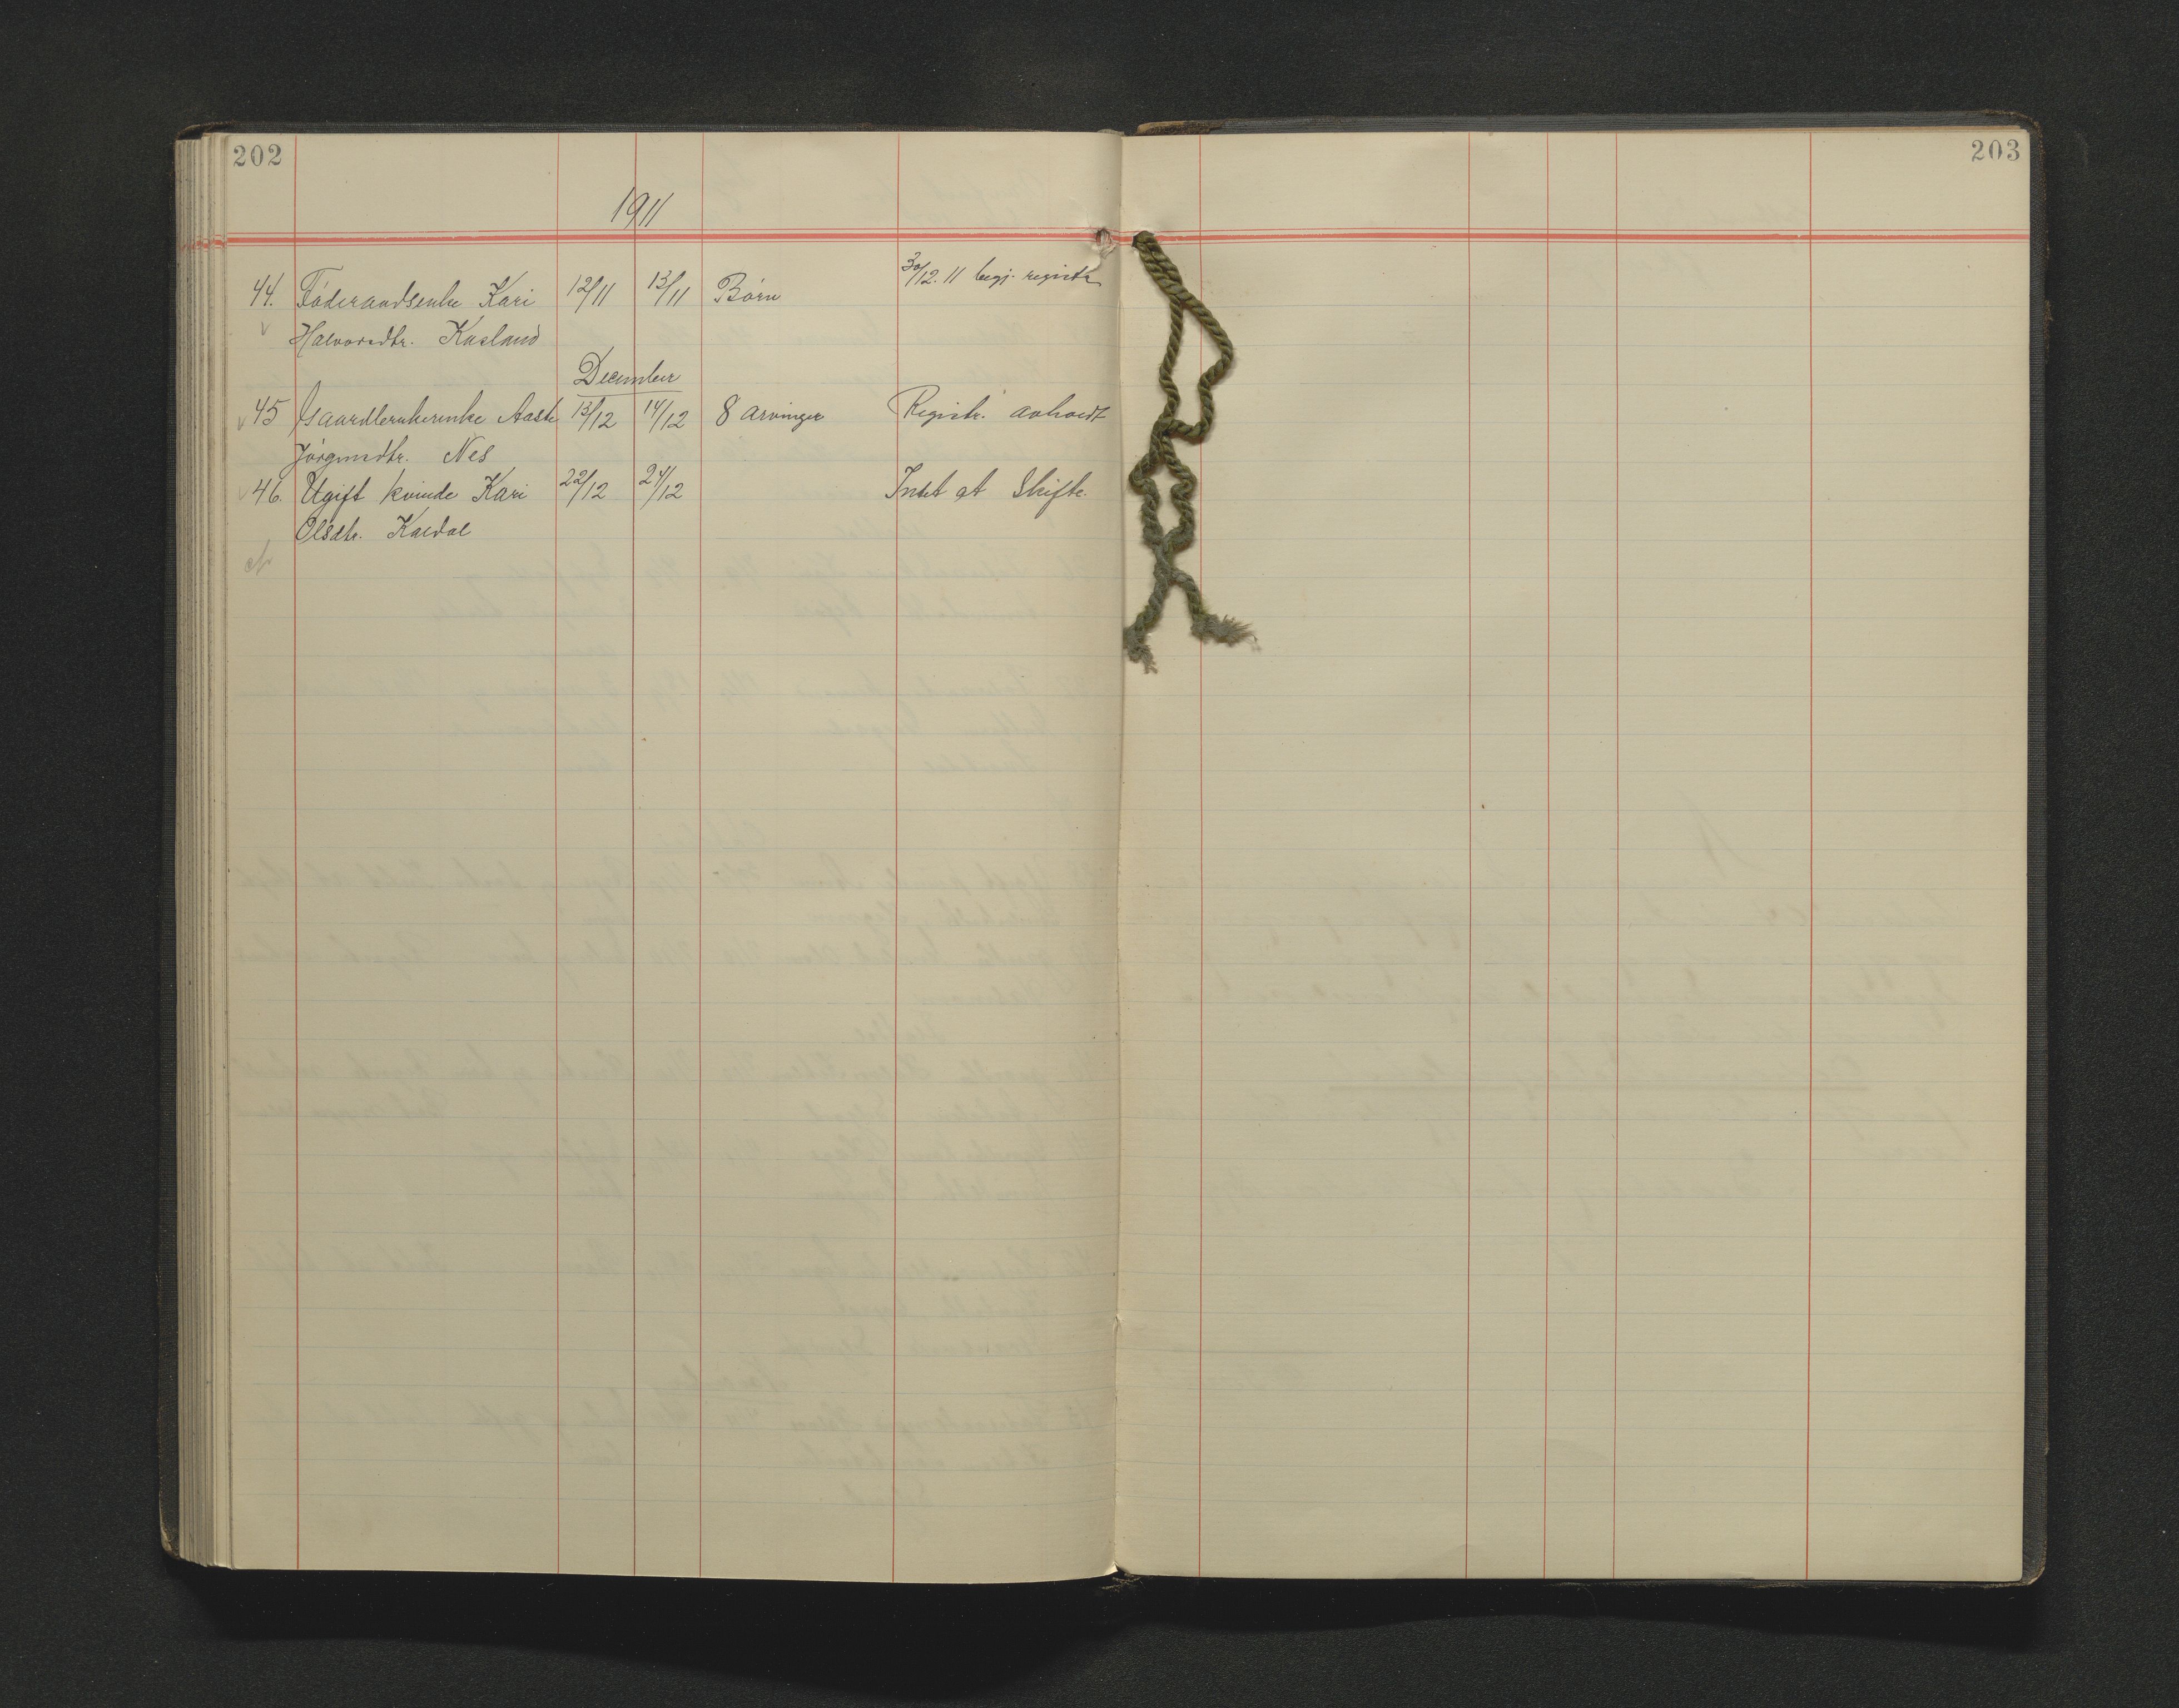 202
203
1911
44. Föderaadsenke Kari 12/11 13/11 Börn 30/12.11 begj. registr.
Halvorsdtr. Kasland
December
45 Gaardbrukerenke Aaste 13/12 14/12 8 arvinger Registr. avholdt
Jörgensdtr. Nes
46. Ugift kvinde Kari 22/12 24/12 Intet at Skifte.
Olsdtr. Kaldal